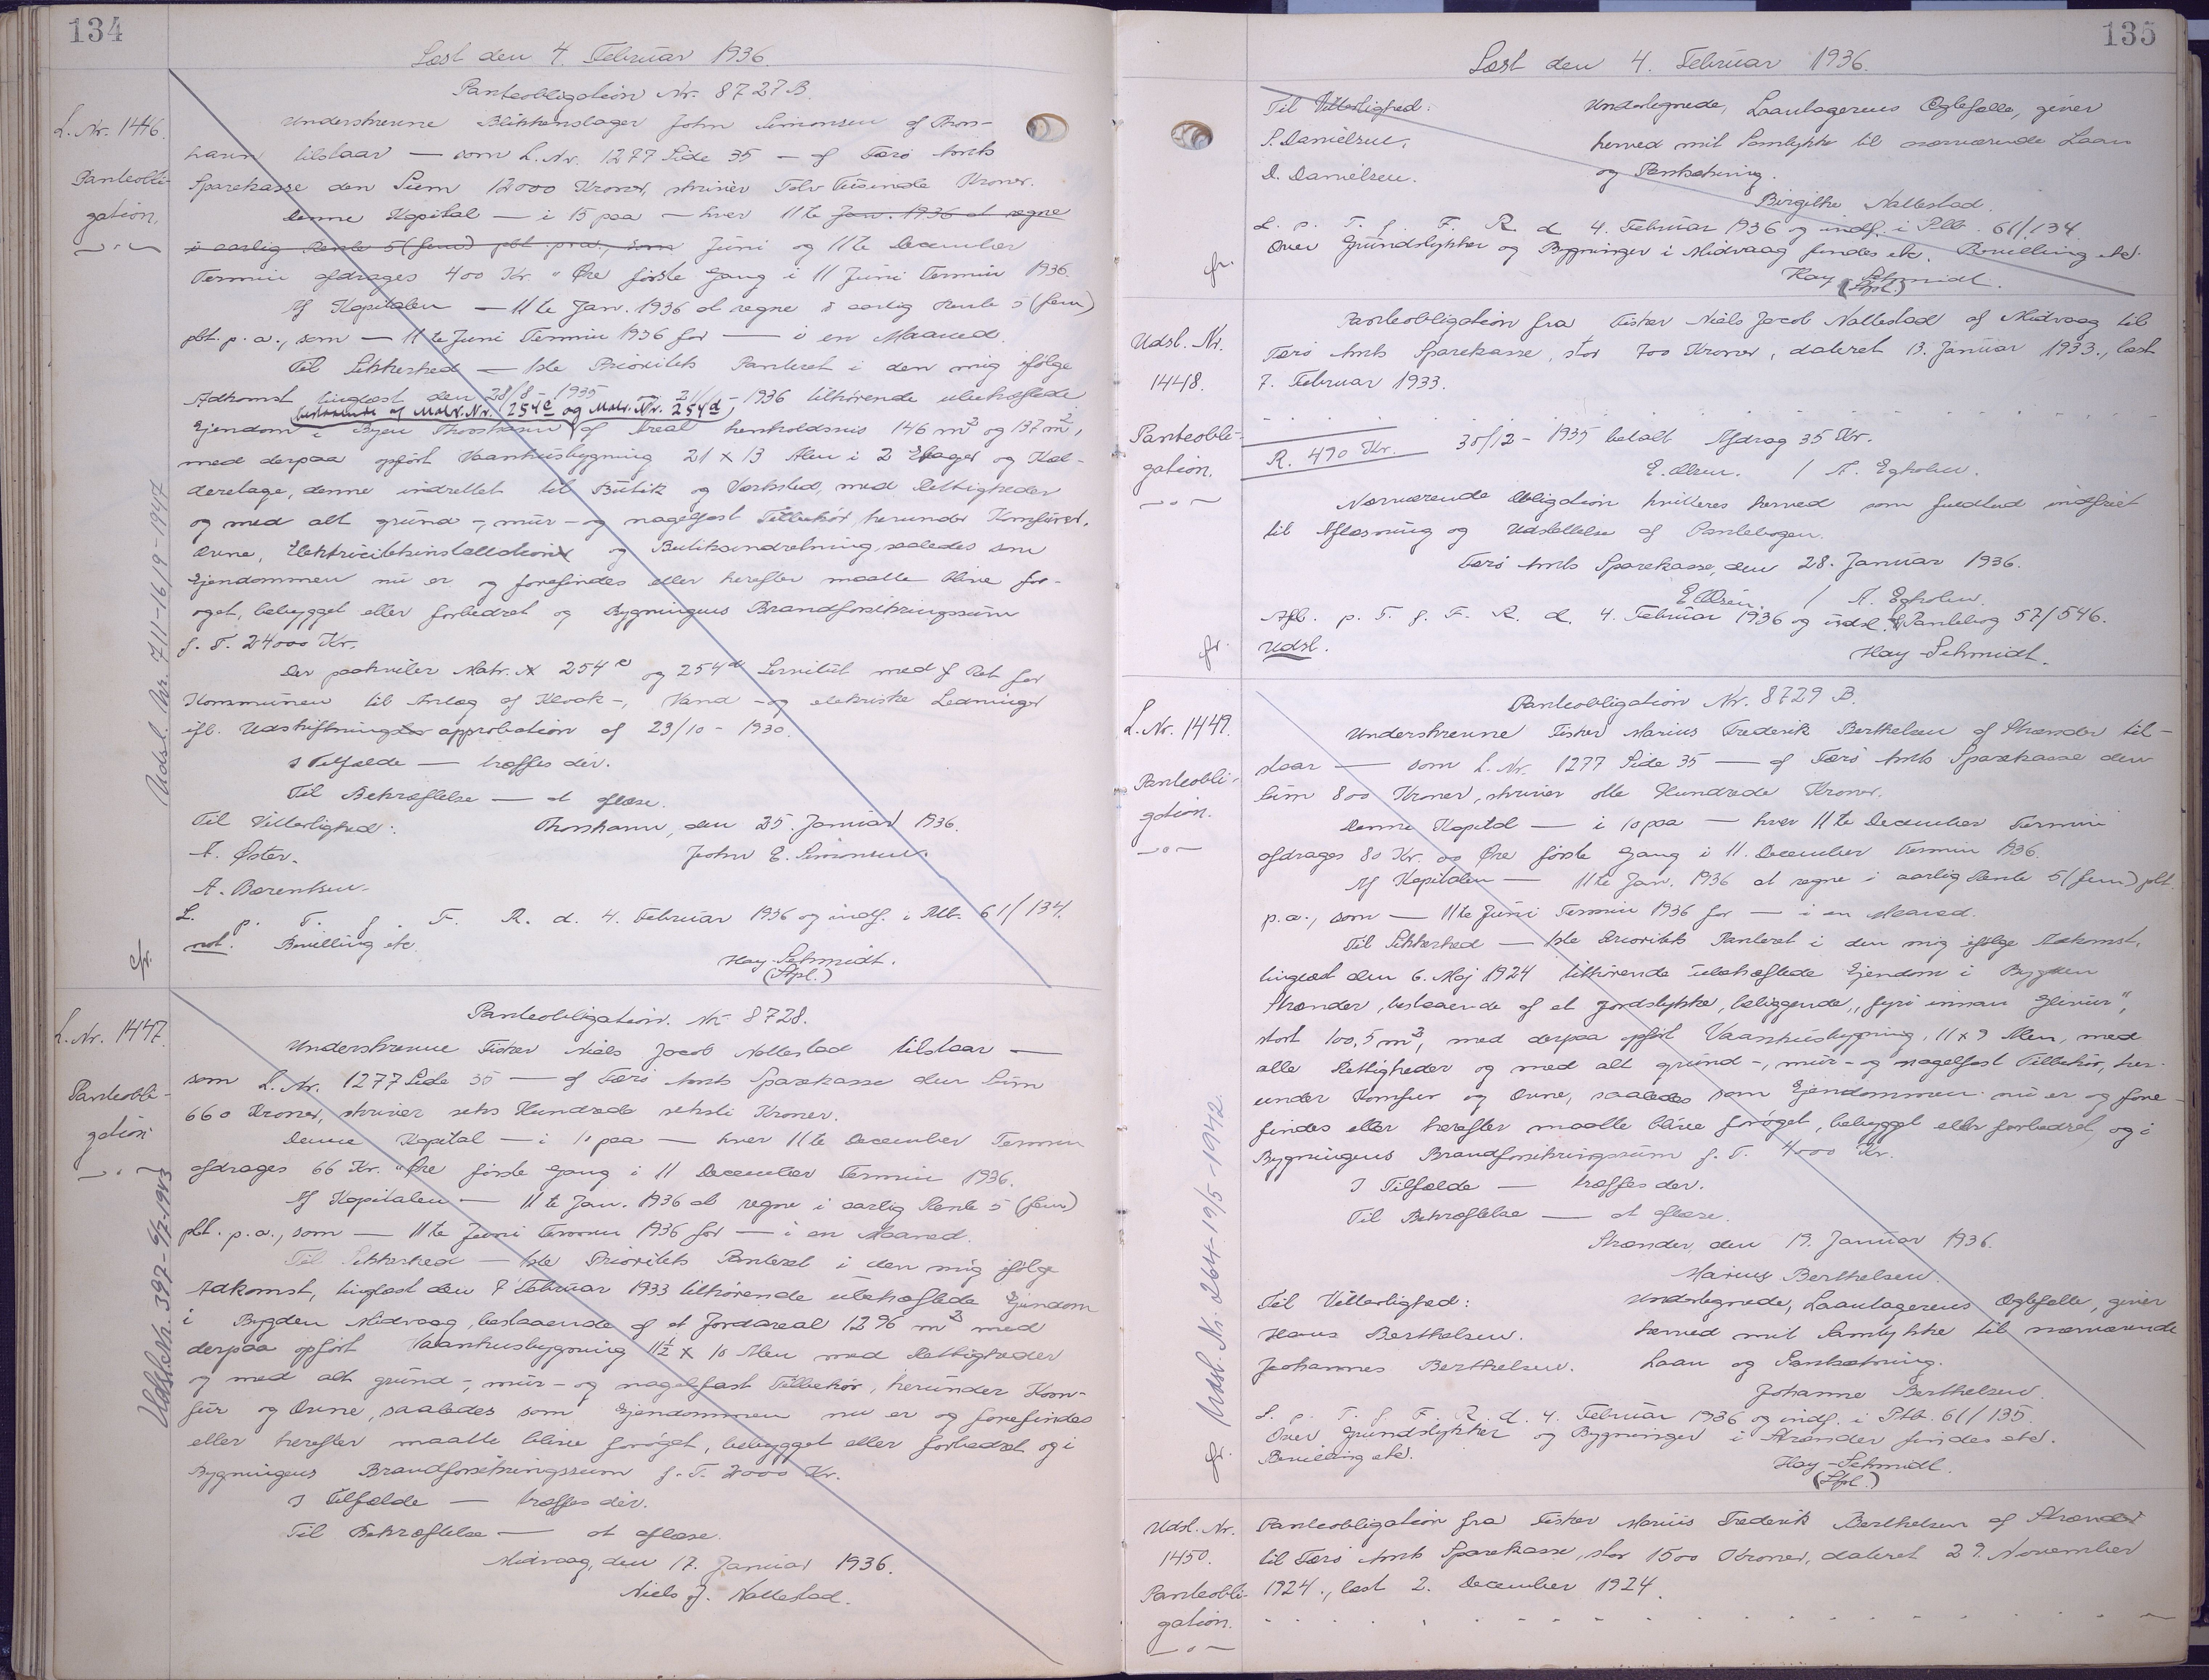 134
Læst den 4. Februar 1936.
Panteobligation Nr. 8727 B.
L. Nr. 1446.
Panteobli-
gation.
Underskrevne Blikkenslager John Simonsen af Thors-
havn tilstaar — som L. Nr. 1277 Side 35 — af Færø Amts
Sparekasse den Sum 12000 Kroner, skriver Tolv Tusinde Kroner.
Denne Kapital — i 15 paa — hver 11te Jan. 1936 at regne
i aarlig Rente 5 (fem) pCt. p.a., som Juni og 11te December
Termin afdrages 400 Kr. " Øre første Gang i 11 Juni Termin 1936.
Af Kapitalen — 11te Jan. 1936 at regne i aarlig Rente 5 (fem)
pCt. p.a., som — 11te Juni Termin 1936 for — i en Maaned.
Til Sikkerhed — 1ste Prioritets Panteret i den mig ifølge
Adkomst tinglæst den 28/8 - 1935 21/1 - 1936 tilhørende ubehæftede
bestaaende af Matr. Nr. 254c og Matr. Nr. 254d,
Ejendom i Byen Thorshavn af Areal henholdsvis 146 m² og 137 m²,
med derpaa opført Vaanhusbygning 21 x 13 Alen i 2 Etager og Kæl-
deretage, denne indrettet til Butik og Værksted, med Rettigheder
og med alt grund-, mur- og nagelfast Tilbehør, herunder Komfurer,
Ovne, Elektricitetsinstallation og Butiksindretning, saaledes som
Ejendommen nu er og forefindes eller herefter maatte blive for-
øget, bebygget eller forbedret og Bygningens Brandforsikringssum
f. T. 24000 Kr.
Der paahviler Matr. Nr 254c og 254d Servitut med f Ret for
Kommunen til Anlæg af Kloak-, Vand- og elektriske Ledninger
ifl. Udskiftningsapprobation af 23/10 - 1930.
I Tilfælde — træffes der.
Til Bekræftelse — at aflæse.
Til Vitterlighed: Thorshavn, den 25. Januar 1936.
A. Øster. John E. Simonsen.
A. Barentsen.
L. p. T. f. F. R. d. 4. Februar 1936 og indf. i Ptb. 61/134.
not. Bevilling etc.
Hay-Schmidt.
(Stpl.)
Udsl. Nr. 711-16/9-1947
fr.
L. Nr. 1447.
Panteobli-
gation
Panteobligation. Nr. 8728.
Underskrevne Fisker Niels Jacob Nattestad tilstaar —
som L. Nr. 1277 Side 35 — af Færø Amts Sparekasse den Sum
660 Kroner, skriver seks Hundrede seksti Kroner.
Denne Kapital — i 10 paa — hver 11te December Termin
afdrages 66 Kr. " Øre første Gang i 11 December Termin 1936.
Af Kapitalen — 11te Jan. 1936 at regne i aarlig Rente 5 (fem)
pCt. p.a., som — 11te Juni Termin 1936 for — i en Maaned.
Til Sikkerhed — 1ste Prioritets Panteret i den mig ifølge
Adkomst, tinglæst den 7 Februar 1933 tilhørende ubehæftede Ejendom
i Bygden Midvaag, bestaaende af et Jordareal 1296 m² med
derpaa opført Vaanhusbygning 11½ x 10 Alen med Rettigheder
og med alt grund-, mur- og nagelfast Tilbehør, herunder Kom-
fur og Ovne, saaledes som Ejendommen nu er og forefindes
eller herefter maatte blive forøget, bebygget eller forbedret og i
Bygningens Brandforsikringssum f. T. 2000 Kr.
I Tilfælde — træffes der.
Til Bekræftelse — at aflæse.
Midvaag, den 17. Januar 1936.
Niels J. Nattestad.
Udsl. Nr. 397 - 6/7-1943
135
Læst den 4. Februar 1936.
Til Vitterlighed: Undertegnede, Laantagerens Ægtefælle, giver
P. Danielsen. herved mit Samtykke til nærværende Laan
D. Danielsen. og Pantsætning.
Birgithe Nattestad.
L. p. T. f. F. R. d. 4. Februar 1936 og indf. i Ptb. 61/134.
Over Grundstykker og Bygninger i Midvaag findes etc. Bevilling etc.
Hay-Schmidt.
(Stpl.)
fr.
Udsl. Nr.
1448.
Panteobli-
gation.
Panteobligation fra Fisker Niels Jacob Nattestad af Midvaag til
Færø Amts Sparekasse, stor 700 Kroner, dateret 13. Januar 1933., læst
7. Februar 1933.
R. 490 Kr. 30/12 - 1935 betalt Afdrag 35 Kr.
E. Olsen. / A. Egholm.
Nærværende Obligation kvitteres herved som fuldtud indfriet
til Aflæsning og Udslettelse af Pantebogen.
Færø Amts Sparekasse, den 28. Januar 1936.
E. Olsen. / A. Egholm.
Afl. p. T. f. F. R. d. 4. Februar 1936 og udsl. af Pantebog 57/546.
Udsl. Hay-Schmidt.
fr.
L. Nr. 1449.
Panteobli-
gation.
Panteobligation Nr. 8729 B.
Underskrevne Fisker Marius Frederik Berthelsen af Strænder til-
staar — som L. Nr. 1277 Side 35 — af Færø Amts Sparekasse den
Sum 800 Kroner, skriver otte Hundrede Kroner.
Denne Kapital — i 10 paa — hver 11te December Termin
afdrages 80 Kr. 00 Øre første Gang i 11. December Termin 1936.
Af Kapitalen — 11te Jan. 1936 at regne i aarlig Rente 5 (fem) pCt.
p.a., som — 11te Juni Termin 1936 for — i en Maaned.
Til Sikkerhed — 1ste Prioritets Panteret i den mig ifølge Adkomst,
tinglæst den 6. Maj 1924 tilhørende ubehæftede Ejendom i Bygden
Strænder, bestaaende af et Jordstykke, beliggende "fyri innan Glivur",
stort 100,5 m², med derpaa opført Vaanhusbygning, 11 x 9 Alen, med
alle Rettigheder og med alt grund-, mur- og nagelfast Tilbehør, her-
under Komfur og Ovne, saaledes som Ejendommen nu er og fore-
findes eller herefter maatte blive forøget, bebygget eller forbedret, og i
Bygningens Brandforsikringssum f. T. 4000 Kr.
I Tilfælde — træffes der.
Til Bekræftelse — at aflæse.
Strænder, den 19. Januar 1936.
Marius Berthelsen.
Til Vitterlighed: Undertegnede, Laantagerens Ægtefælle, giver
Hans Berthelsen. herved mit Samtykke til nærværende
Johannes Berthelsen. Laan og Pantsætning.
Johanne Berthelsen
L. p. T. f. F. R. d. 4. Februar 1936 og indf. i Ptb. 61/135.
Over Grundstykker og Bygninger i Strænder findes etc.
Bevilling etc. Hay-Schmidt.
(Stpl.)
fr. Udsl. Nr. 264-19/5-1942.
Udsl. Nr.
1450.
Panteobli-
gation.
Panteobligation fra Fisker Marius Frederik Berthelsen af Strænder
til Færø Amts Sparekasse, stor 1500 Kroner, dateret 29. November
1924., læst 2. December 1924.